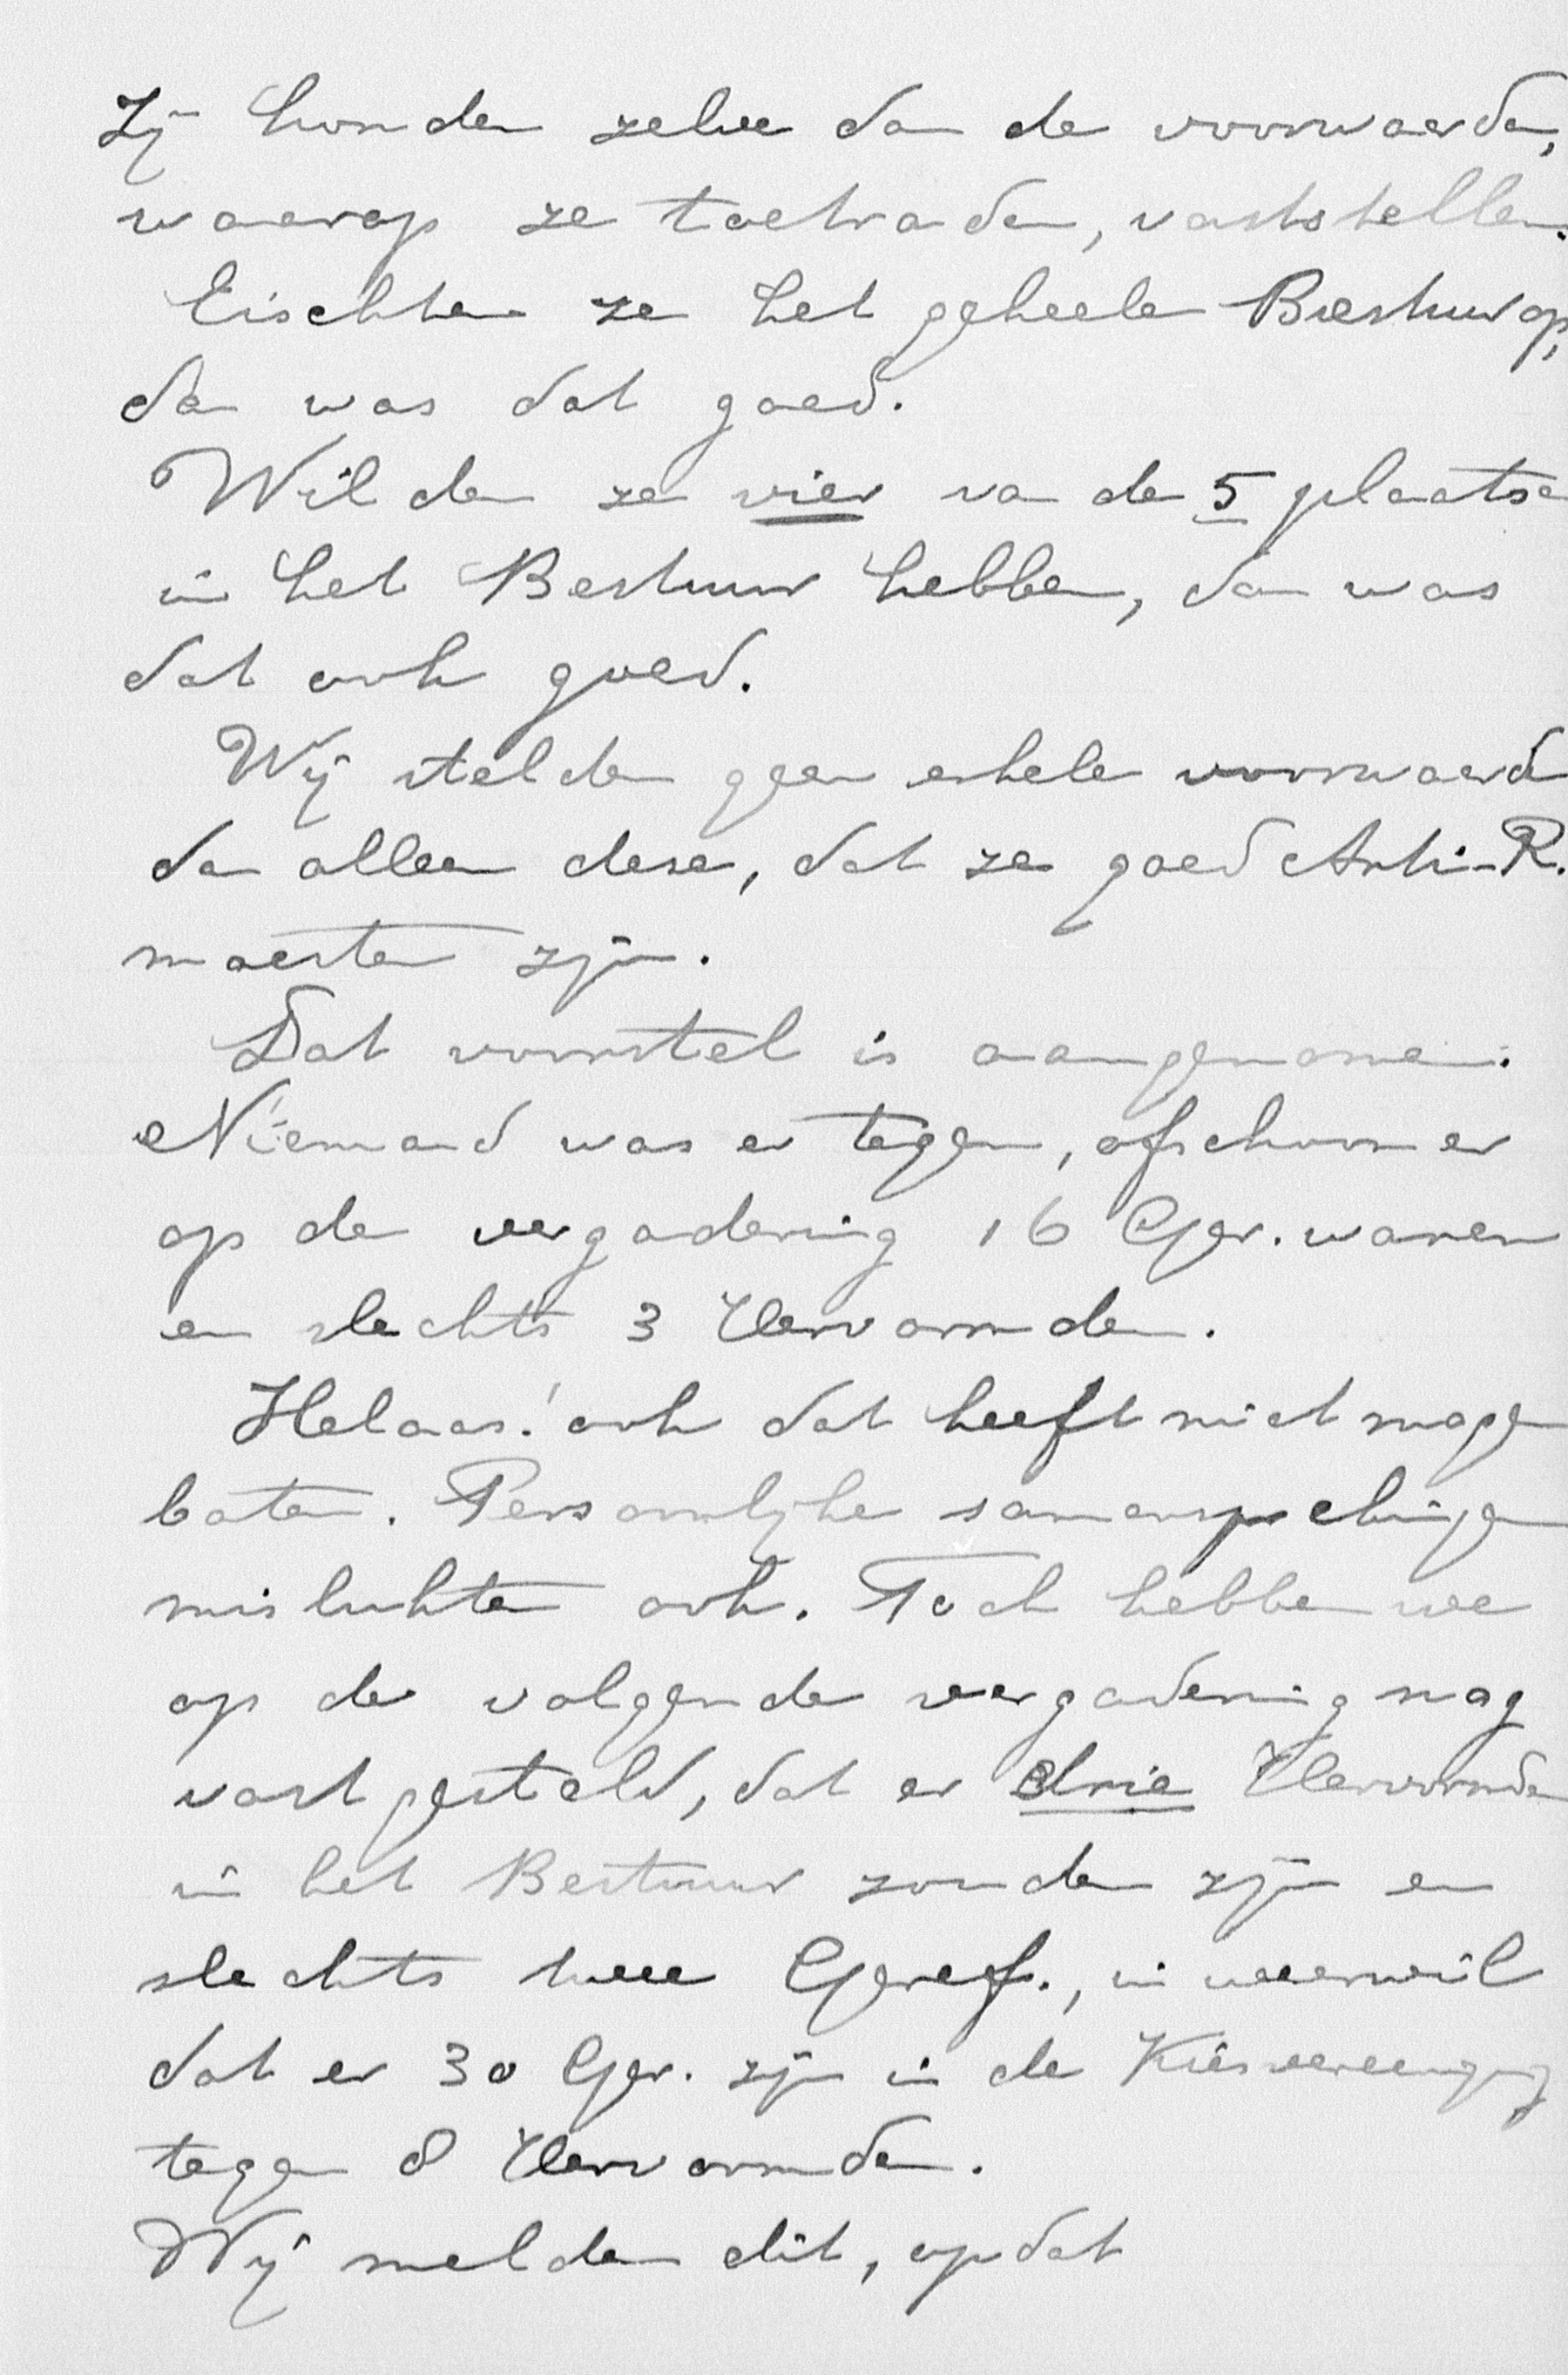 Zij konden zelve dan de voorwaarden,
waarop ze toetraden, vaststellen.
Eischten ze het geheele Bestuur op,
dan was dat goed.
Wilden ze vier van de 5 plaatsen
in het Bestuur hebben, dan was
dat ook goed.
Wij stelden geen enkele voorwaarde
dan alleen deze, dat ze goed Anti-R.
moesten zijn.
Dat voorstel is aangenomen.
Niemand was er tegen, ofschoon er
op de vergadering 16 Ger. waren
en slechts 3 Hervormden.
Helaas! ook dat heeft niet mogen
baten. Persoonlijke samensprekingen
mislukten ook. Toch hebben we
op de volgende vergadering nog
vastgesteld, dat er drie Hervormden
in het Bestuur zouden zijn en
slechts twee Geref., in weerwil
dat er 30 Ger. zijn in de Kiesvereeniging
tegen 8 Hervormden.
Wij melden dit, opdat